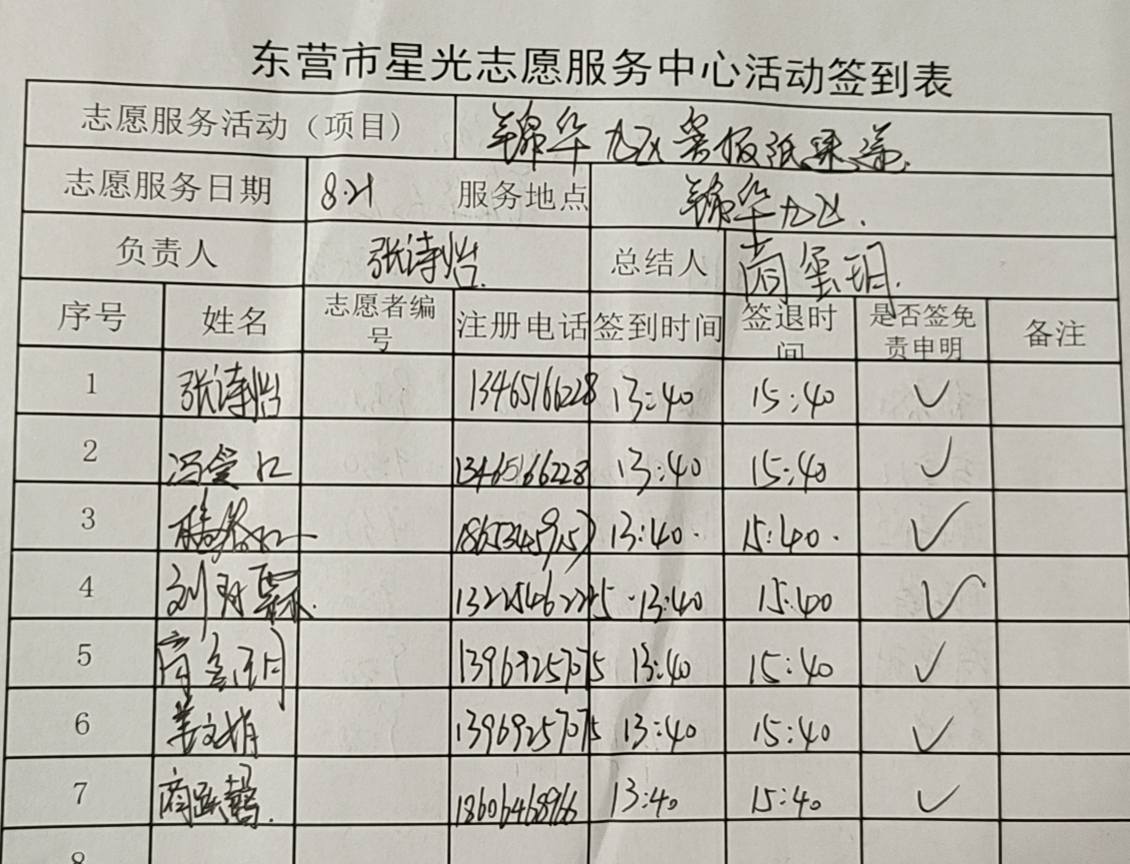 东营市星光志愿服务中心活动签到表
志愿服务活动（项目） 锦华九区
志愿服务日期 8.21 服务地点 锦华九区.
负责人 张诗怡. 总结人
序号 姓名 志愿者编号 注册电话 签到时间 签退时间 是否签免责申明 备注
1 张诗怡 13465166228 13:40 15:40 ✓
2 冯 13465166228 13:40 15:40 ✓
3 13:40. 15:40. ✓
4 刘 13:40 15:40 ✓
5 13969257075 13:40 15:40 ✓
6 姜文娟 13969257075 13:40 15:40 ✓
7 商跃馨. 18606468966 13:40 15:40 ✓
8